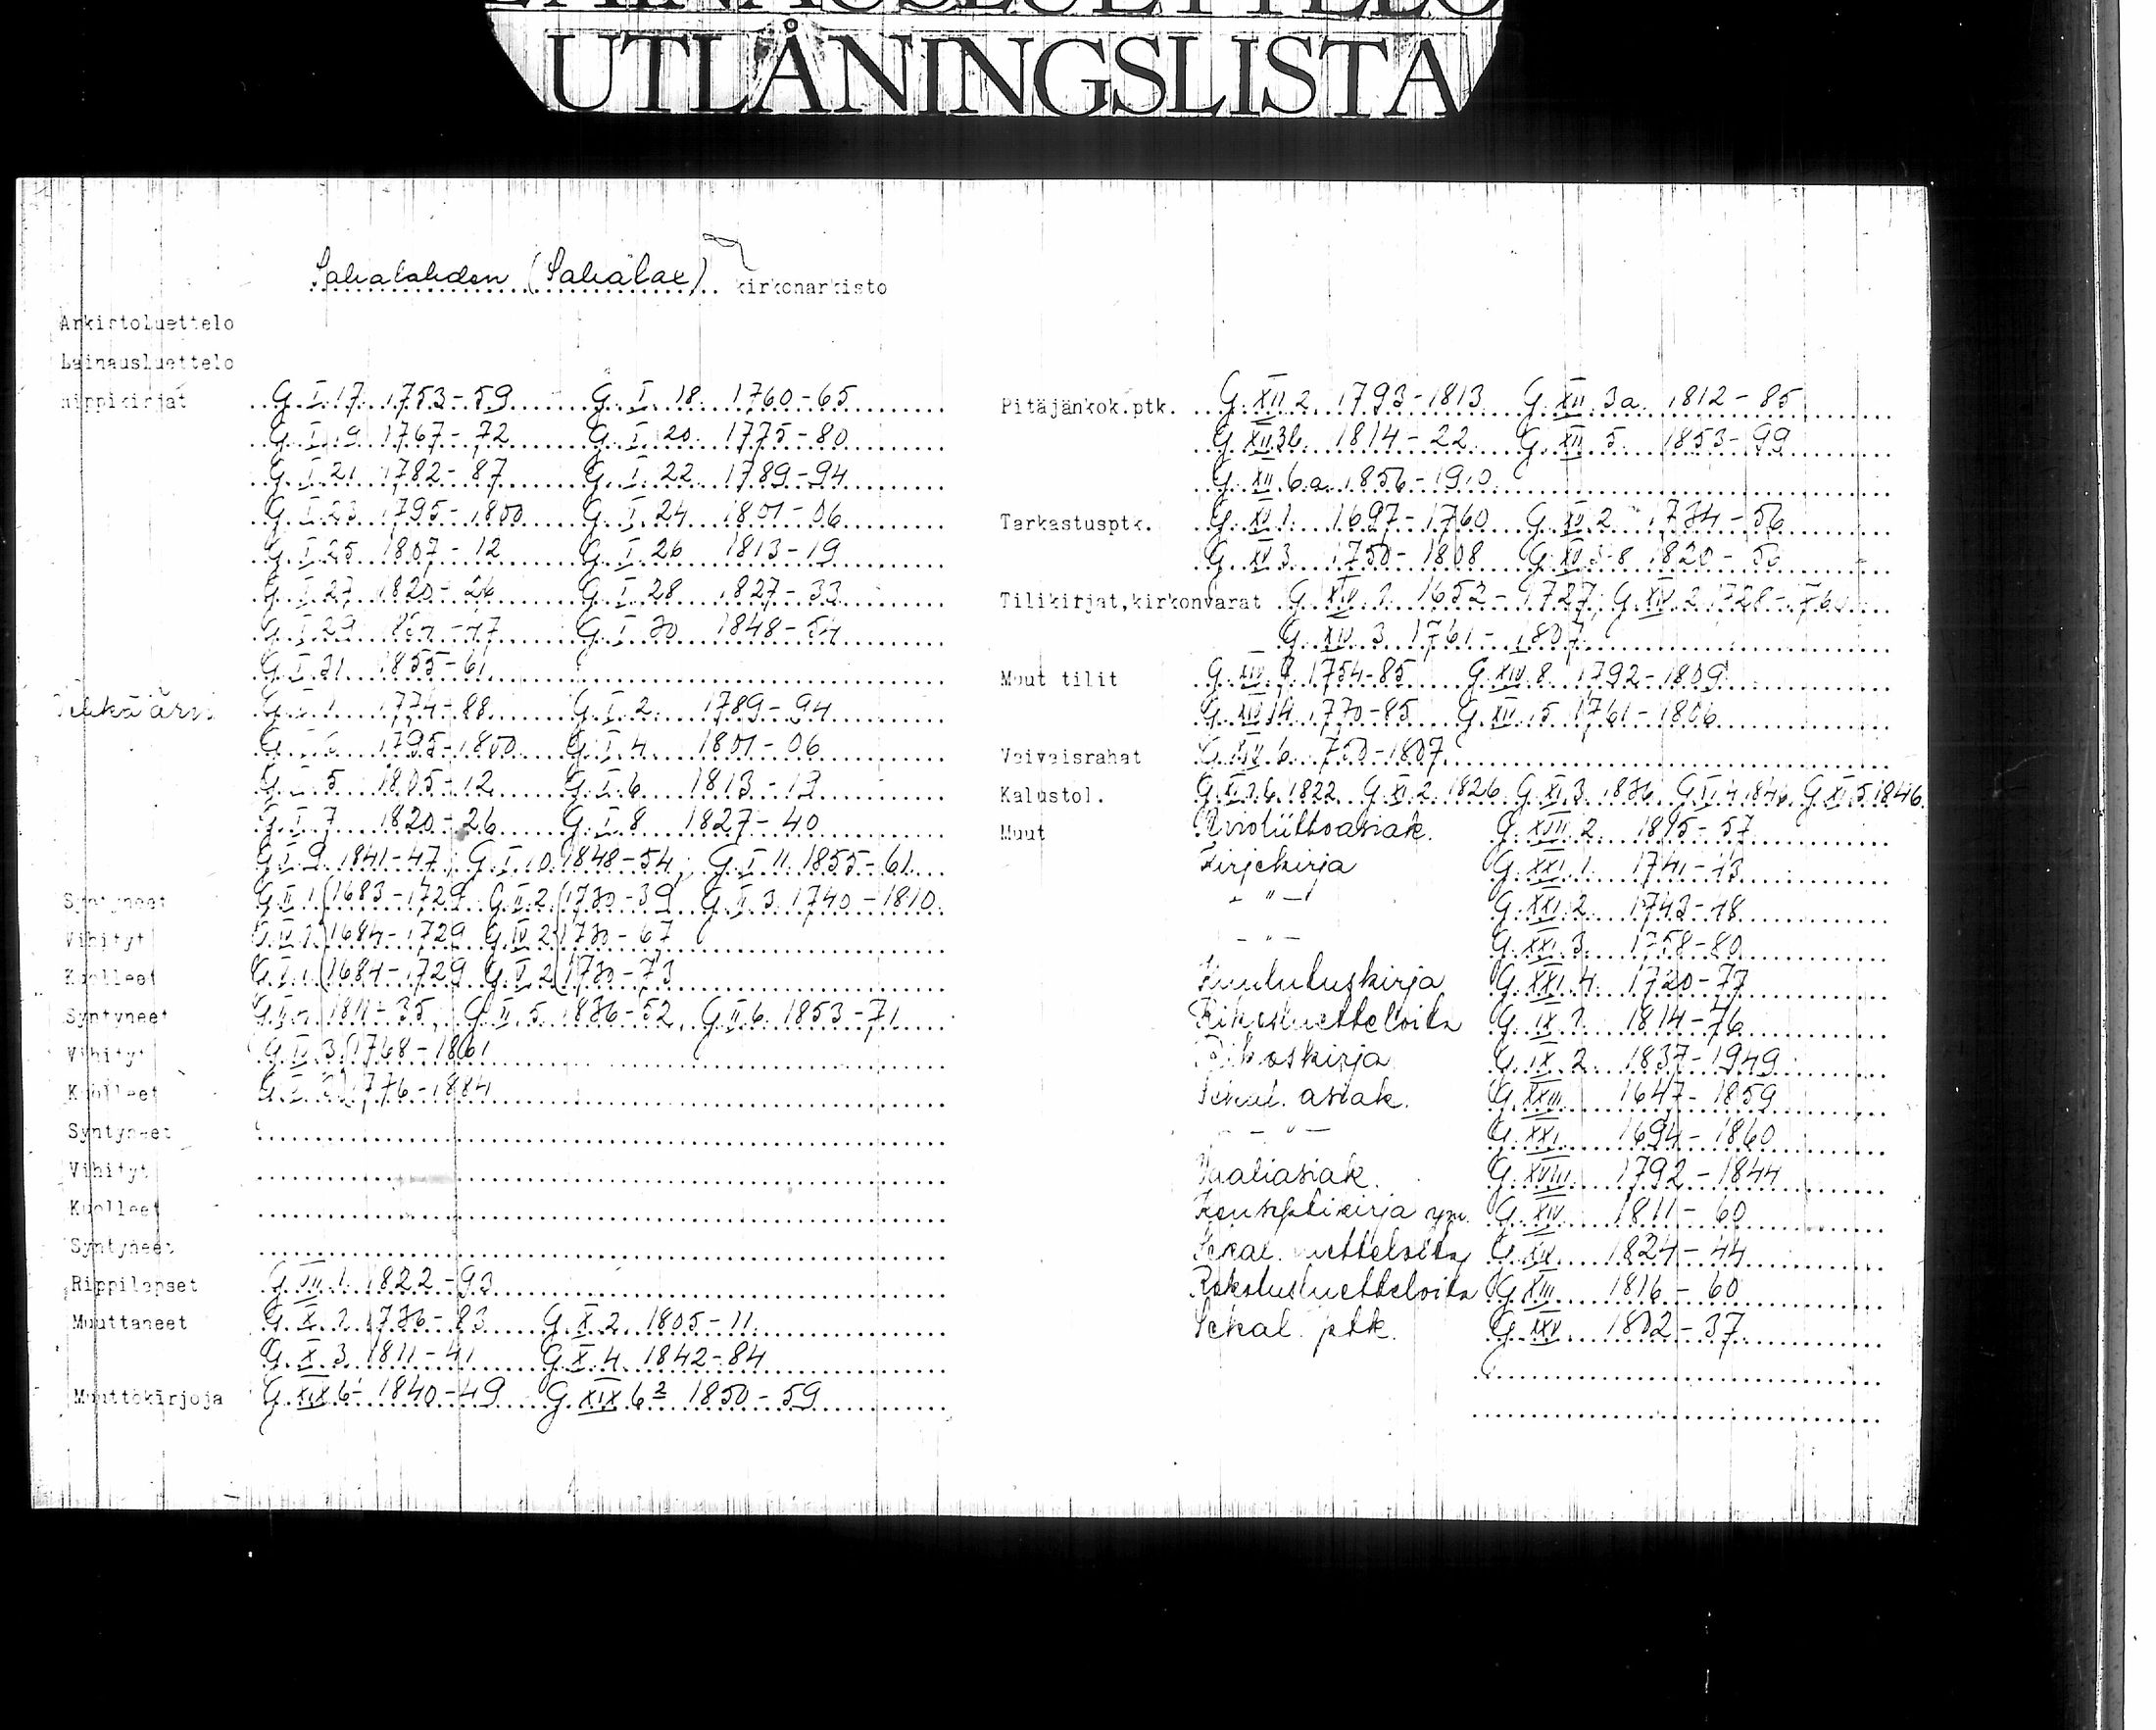 LAINAUSLUETTELO
UTLÅNINGSLISTA
Sahalahden (Sahalax) kirkonarkisto
Arkistoluettelo
Lainausluettelo
Rippikirjat G.I.17. 1753-59 G.I.18. 1760-65
G.I.19 1767-72 G.I.20. 1775-80
G.I.21 1782-87 G.I.22 1789-94
G.I.23 1795-1800 G.I.24 1801-06
G.I.25 1807-12 G.I.26 1813-19
G.I.27 1820-26 G.I.28 1827-33
G.I.29 -47 G.I.30 1848-54
G.I.31 1855-61
G.I.1 1774-88 G.I.2. 1789-94
G.I.3 1795-1800 G.I.4 1801-06
G.I.5 1805-12 G.I.6 1813-19
G.I.7 1820-26 G.I.8 1827-40
G.I.9 1841-47; G.I.10 1848-54; G.I.11. 1855-61
Syntyneet G.II.1. 1683-1729 G.II.2. 1730-39 G.II.3. 1740-1810
Vihityt G.IV.1. 1684-1729 G.IV.2. 1730-67
Kuolleet G.V.1. 1684-1729 G.V.2. 1730-73
Syntyneet G.II.4. 1811-35, G.II.5. 1836-52, G.II.6. 1853-71
Vihityt G.IV.3. 1768-1861
Kuolleet G.V.3. 1776-1884
Syntyneet
Vihityt
Kuolleet
Syntyneet
Rippilapset G.III.1. 1822-93
Muuttaneet G.X.1. 1786-83 G.X.2. 1805-11
G.X.3. 1811-41 G.X.4. 1842-84
Muuttokirjoja G.XIX 6¹ 1840-49 G.XIX 6² 1850-59
Pitäjänkok.ptk. G.XII 2. 1793-1813 G.XII.3a. 1812-85
G.XII.3b. 1814-22 G.XII.5. 1853-99
G.XII.6.a. 1856-1910
Tarkastusptk. G.XV.1. 1697-1760 G.XV.2. 1734-56
G.XV.3. 1750-1808 G.XV.3-8 1820-
Tilikirjat,kirkonvarat G.XIV.1. 1652-1727; G.XIV.2. 1728-1760
G.XIV.3. 1761-1807
Muut tilit G.XIV.7. 1754-85 G.XIV.8. 1792-1809
G.XIV.14. 1770-85 G.XIV.5. 1761-1806
Vaivaisrahat G.XIV.6. 1750-1807
Kalustol. G.XI.1.6. 1822 G.XI.2. 1826 G.XI.3. 1836 G.XI.4. 1846 G.XI.5. 1846
Muut Avioliittoasiak. G.XIII.2. 1815-57
Kirjekirja G.XXI.1. 1741-43
-"- G.XXI.2. 1743-48
-"- G.XXI.3. 1758-80
Kuulutuskirja G.XXI.4. 1720-77
Rikosluetteloita G.IX.1. 1814-76
Rikoskirja G.IX.2. 1837-1949
Sekal. asiak. G.XXIII. 1647-1859
-"- G.XXI. 1694-1860
Vaaliasiak. G.XVIII. 1792-1844
Konseptikirja ym. G.XIV 1811-60
Sekal. luetteloita G.XIX. 1824-44
Rokotusluetteloita G.XIII 1816-60
Sekal. ptk. G.XXV. 1802-37